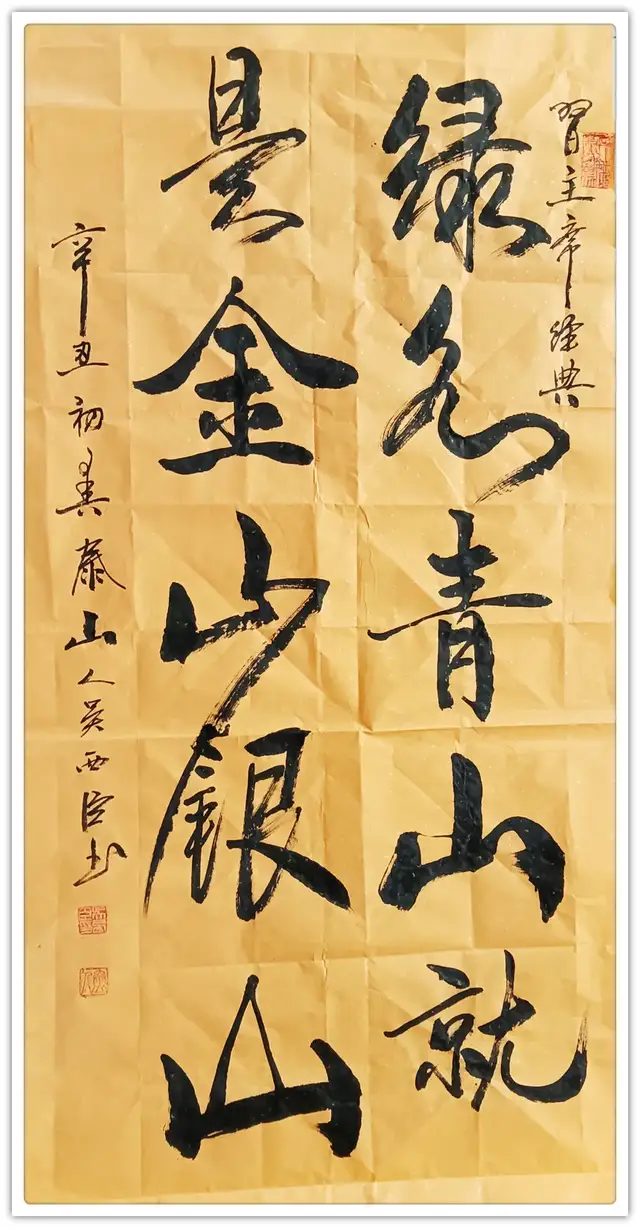 習主席经典
绿水青山就
是金山银山
辛丑初春泰山人吴西臣书